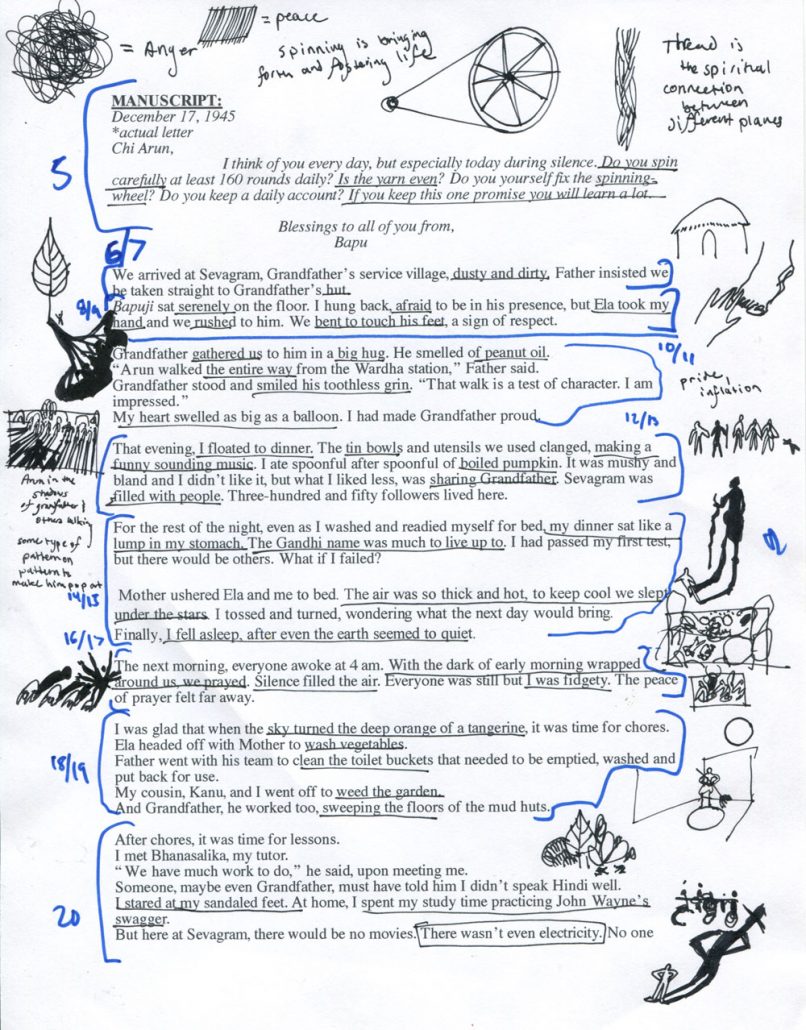 = Anger
= peace
spinning is bringing
forth and fostering life
Thread is
the spiritual
connection
between
different planes
MANUSCRIPT:
December 17, 1945
*actual letter
Chi Arun,
I think of you every day, but especially today during silence. Do you spin
carefully at least 160 rounds daily? Is the yarn even? Do you yourself fix the spinning-
wheel? Do you keep a daily account? If you keep this one promise you will learn a lot.
5
Blessings to all of you from,
Bapu
6/7
We arrived at Sevagram, Grandfather's service village, dusty and dirty. Father insisted we
be taken straight to Grandfather's hut.
8/9
Bapuji sat serenely on the floor. I hung back, afraid to be in his presence, but Ela took my
hand and we rushed to him. We bent to touch his feet, a sign of respect.
10/11
Grandfather gathered us to him in a big hug. He smelled of peanut oil.
"Arun walked the entire way from the Wardha station," Father said.
Grandfather stood and smiled his toothless grin. "That walk is a test of character. I am
impressed."
My heart swelled as big as a balloon. I had made Grandfather proud.
pride,
inflation
12/13
That evening, I floated to dinner. The tin bowls and utensils we used clanged, making a
funny sounding music. I ate spoonful after spoonful of boiled pumpkin. It was mushy and
bland and I didn't like it, but what I liked less, was sharing Grandfather. Sevagram was
filled with people. Three-hundred and fifty followers lived here.
Arun in the
shadows
of grandfather &
others talking
some type of
pattern on
pattern to
make him pop out
14/15
For the rest of the night, even as I washed and readied myself for bed, my dinner sat like a
lump in my stomach. The Gandhi name was much to live up to. I had passed my first test,
but there would be others. What if I failed?
Mother ushered Ela and me to bed. The air was so thick and hot, to keep cool we slept
under the stars. I tossed and turned, wondering what the next day would bring.
Finally, I fell asleep, after even the earth seemed to quiet.
16/17
The next morning, everyone awoke at 4 am. With the dark of early morning wrapped
around us, we prayed. Silence filled the air. Everyone was still but I was fidgety. The peace
of prayer felt far away.
18/19
I was glad that when the sky turned the deep orange of a tangerine, it was time for chores.
Ela headed off with Mother to wash vegetables.
Father went with his team to clean the toilet buckets that needed to be emptied, washed and
put back for use.
My cousin, Kanu, and I went off to weed the garden.
And Grandfather, he worked too, sweeping the floors of the mud huts.
20
After chores, it was time for lessons.
I met Bhanasalika, my tutor.
"We have much work to do," he said, upon meeting me.
Someone, maybe even Grandfather, must have told him I didn't speak Hindi well.
I stared at my sandaled feet. At home, I spent my study time practicing John Wayne's
swagger.
But here at Sevagram, there would be no movies. There wasn't even electricity. No one